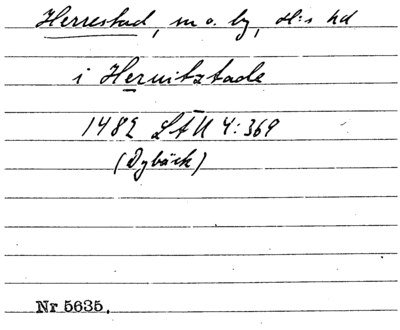 Herrestad, m o. by, H:s hd
i Heruitztade
1482 LAU 4:369
(Dybäck)
Nr 5635.